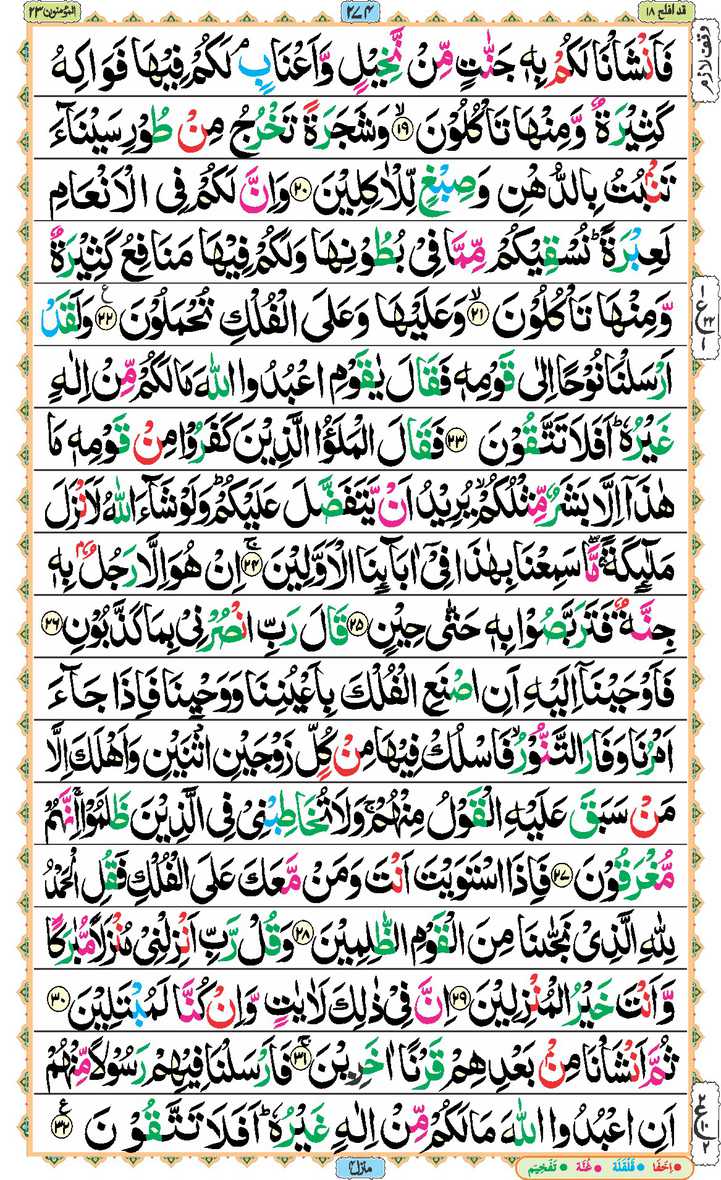 قد افلح ١٨
٢٧٤
المؤمنون ٢٣
وقف لازم
فَاَنْشَاْنَا لَكُمْ بِهٖ جَنّٰتٍ مِّنْ نَّخِيْلٍ وَّاَعْنَابٍ ۘ لَكُمْ فِيْهَا فَوَاكِهُ
كَثِيْرَةٌ وَّمِنْهَا تَاْكُلُوْنَ ۙ﴿١٩﴾ وَشَجَرَةً تَخْرُجُ مِنْ طُوْرِ سَيْنَآءَ
تَنْۢبُتُ بِالدُّهْنِ وَصِبْغٍ لِّلْاٰكِلِيْنَ ﴿٢٠﴾ وَاِنَّ لَكُمْ فِى الْاَنْعَامِ
لَعِبْرَةً ؕ نُسْقِيْكُمْ مِّمَّا فِيْ بُطُوْنِهَا وَلَكُمْ فِيْهَا مَنَافِعُ كَثِيْرَةٌ
وَّمِنْهَا تَاْكُلُوْنَ ۙ﴿٢١﴾ وَعَلَيْهَا وَعَلَى الْفُلْكِ تُحْمَلُوْنَ ﴿٢٢﴾ ع وَلَقَدْ
اَرْسَلْنَا نُوْحًا اِلٰى قَوْمِهٖ فَقَالَ يٰقَوْمِ اعْبُدُوا اللّٰهَ مَا لَكُمْ مِّنْ اِلٰهٍ
غَيْرُهٗ ؕ اَفَلَا تَتَّقُوْنَ ﴿٢٣﴾ فَقَالَ الْمَلَؤُا الَّذِيْنَ كَفَرُوْا مِنْ قَوْمِهٖ مَا
هٰذَآ اِلَّا بَشَرٌ مِّثْلُكُمْ ۙ يُرِيْدُ اَنْ يَّتَفَضَّلَ عَلَيْكُمْ ؕ وَلَوْ شَآءَ اللّٰهُ لَاَنْزَلَ
مَلٰٓئِكَةً ۚۖ مَّا سَمِعْنَا بِهٰذَا فِيْٓ اٰبَآئِنَا الْاَوَّلِيْنَ ۚ﴿٢٤﴾ اِنْ هُوَ اِلَّا رَجُلٌۢ بِهٖ
جِنَّةٌ فَتَرَبَّصُوْا بِهٖ حَتّٰى حِيْنٍ ﴿٢٥﴾ قَالَ رَبِّ انْصُرْنِيْ بِمَا كَذَّبُوْنِ ﴿٢٦﴾
فَاَوْحَيْنَآ اِلَيْهِ اَنِ اصْنَعِ الْفُلْكَ بِاَعْيُنِنَا وَوَحْيِنَا فَاِذَا جَآءَ
اَمْرُنَا وَفَارَ التَّنُّوْرُ ۙ فَاسْلُكْ فِيْهَا مِنْ كُلٍّ زَوْجَيْنِ اثْنَيْنِ وَاَهْلَكَ اِلَّا
مَنْ سَبَقَ عَلَيْهِ الْقَوْلُ مِنْهُمْ ۚ وَلَا تُخَاطِبْنِيْ فِى الَّذِيْنَ ظَلَمُوْا ۚ اِنَّهُمْ
مُّغْرَقُوْنَ ﴿٢٧﴾ فَاِذَا اسْتَوَيْتَ اَنْتَ وَمَنْ مَّعَكَ عَلَى الْفُلْكِ فَقُلِ الْحَمْدُ
لِلّٰهِ الَّذِيْ نَجّٰىنَا مِنَ الْقَوْمِ الظّٰلِمِيْنَ ﴿٢٨﴾ وَقُلْ رَّبِّ اَنْزِلْنِيْ مُنْزَلًا مُّبٰرَكًا
وَّاَنْتَ خَيْرُ الْمُنْزِلِيْنَ ﴿٢٩﴾ اِنَّ فِيْ ذٰلِكَ لَاٰيٰتٍ وَّاِنْ كُنَّا لَمُبْتَلِيْنَ ﴿٣٠﴾
ثُمَّ اَنْشَاْنَا مِنْۢ بَعْدِهِمْ قَرْنًا اٰخَرِيْنَ ۚ﴿٣١﴾ فَاَرْسَلْنَا فِيْهِمْ رَسُوْلًا مِّنْهُمْ
اَنِ اعْبُدُوا اللّٰهَ مَا لَكُمْ مِّنْ اِلٰهٍ غَيْرُهٗ ؕ اَفَلَا تَتَّقُوْنَ ﴿٣٢﴾ ع
منزل ٤
اِخفَا • قَلْقَلَة • غُنَّة • تَفْخِيْم